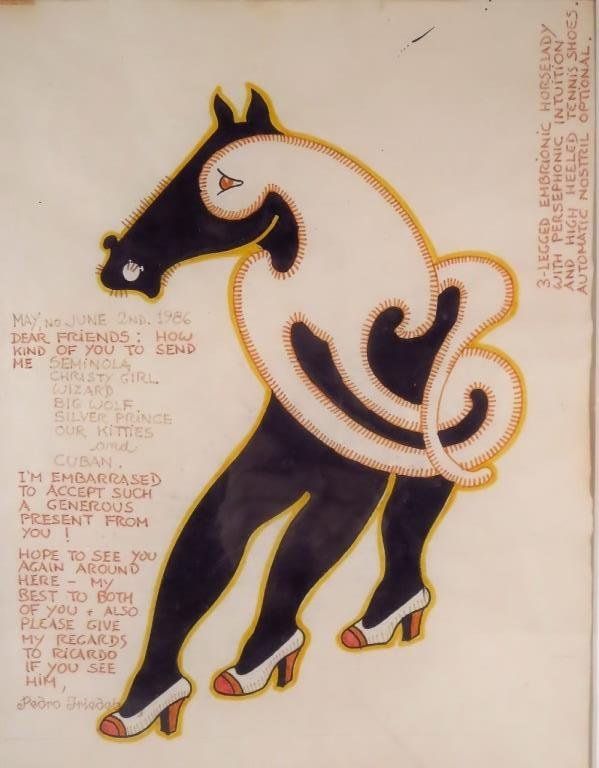 3-LEGGED EMBRIONIC HORSELADY
WITH PERSEPHONIC INTUITION
AND HIGH HEELED TENNIS SHOES.
AUTOMATIC NOSTRIL OPTIONAL.
MAY, NO JUNE 2ND. 1986
DEAR FRIENDS: HOW
KIND OF YOU TO SEND
ME SEMINOLA
CHRISTY GIRL
WIZARD
BIG WOLF
SILVER PRINCE
OUR KITTIES
and
CUBAN.
I'M EMBARRASED
TO ACCEPT SUCH
A GENEROUS
PRESENT FROM
YOU!
HOPE TO SEE YOU
AGAIN AROUND
HERE - MY
BEST TO BOTH
OF YOU + ALSO
PLEASE GIVE
MY REGARDS
TO RICARDO
IF YOU SEE
HIM,
Pedro Friedeb